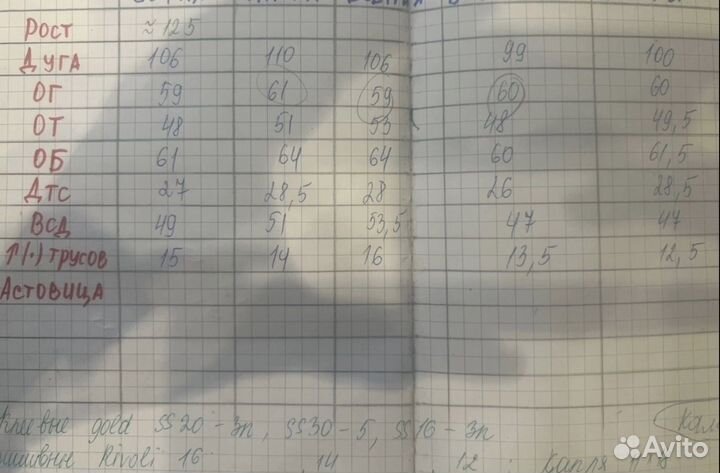 Рост ≈125
Дуга 106 110 106 99 100
ОГ 59 61 59 60 60
ОТ 48 51 53 48 49,5
ОБ 61 64 64 60 61,5
Дтс 27 28,5 28 26 28,5
Всд 49 51 53,5 47 47
↑(·) трусов 15 14 16 13,5 12,5
Ластовица
Клеевые gold SS20-3п, SS30-5, SS16-3п
Rivoli 16 14 12 капля
Avito